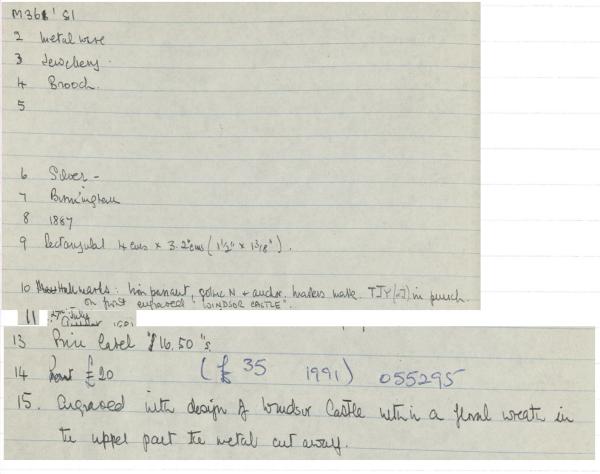 M361' 81
2 Metalware
3 Jewellery.
4 Brooch.
5
6 Silver -
7 Birmingham
8 1887
9 Rectangular 4 cms x 3.2 cms (1½" x 1 3/8").
10 Hallmarks: lion passant, gothic N + anchor. Makers mark TJY in punch.
on front engraved "WINDSOR CASTLE".
11 July
13 Price label "£16.50"s
14 £20 (£ 35 1991) 055295
15. Engraved with design of Windsor Castle within a floral wreath in
the upper part the metal cut away.